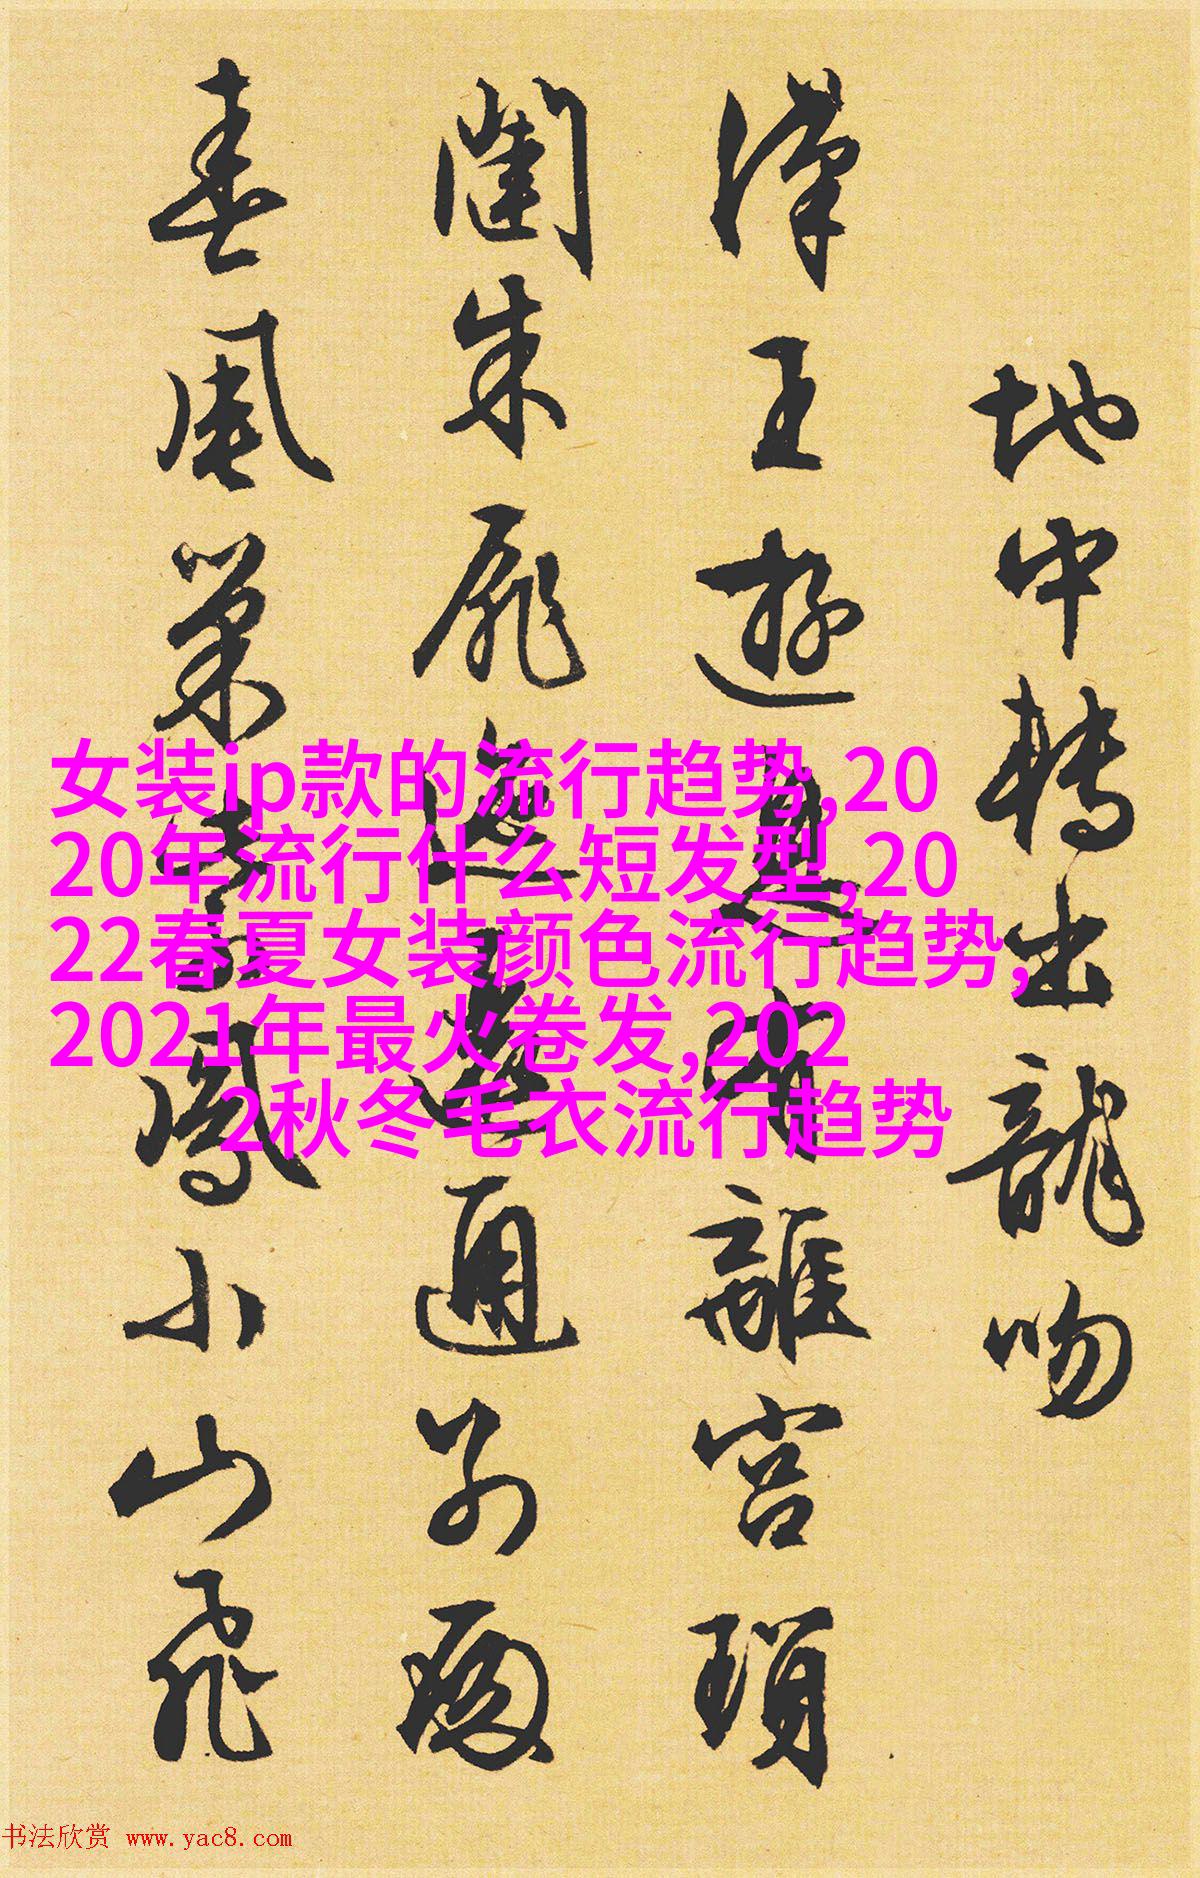 地中轉出龍吻
漢王遊息有離宮瑣
闥朱扉迤邐通別殿
春風巢紫鳳小山飛
女装ip款的流行趋势,20
20年流行什么短发型,20
22春夏女装颜色流行趋势,
2021年最火卷发,202
2秋冬毛衣流行趋势
书法欣赏 www.yac8.com